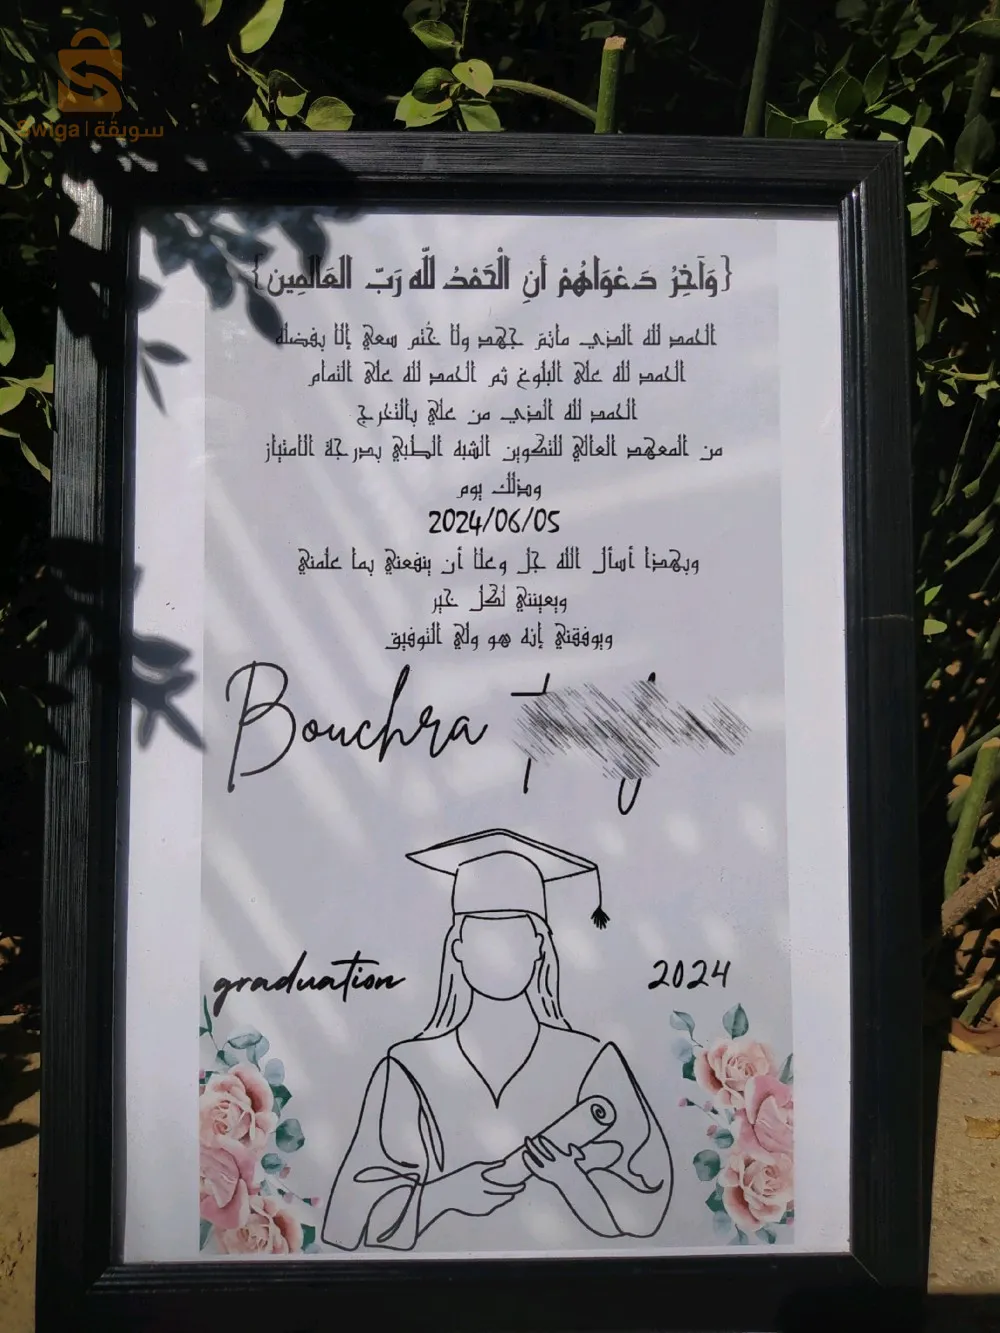 Swiqa | سويقة
{وَآخِرُ دَعْوَاهُمْ أَنِ الْحَمْدُ للّه رَبّ العَالَمِين}
الحمد لله الذي ماتمّ جهد ولا خُتم سعي إلا بفضله
الحمد لله على البلوغ ثم الحمد لله على التمام
الحمد لله الذي من علي بالتخرج
من المعهد العالي للتكوين الشبه الطبي بدرجة الامتياز
وذلك يوم
2024/06/05
وبهذا أسأل الله جل وعلا أن ينفعني بما علمني
ويعينني لكل خير
ويوفقني إنه هو ولي التوفيق
Bouchra
graduation 2024